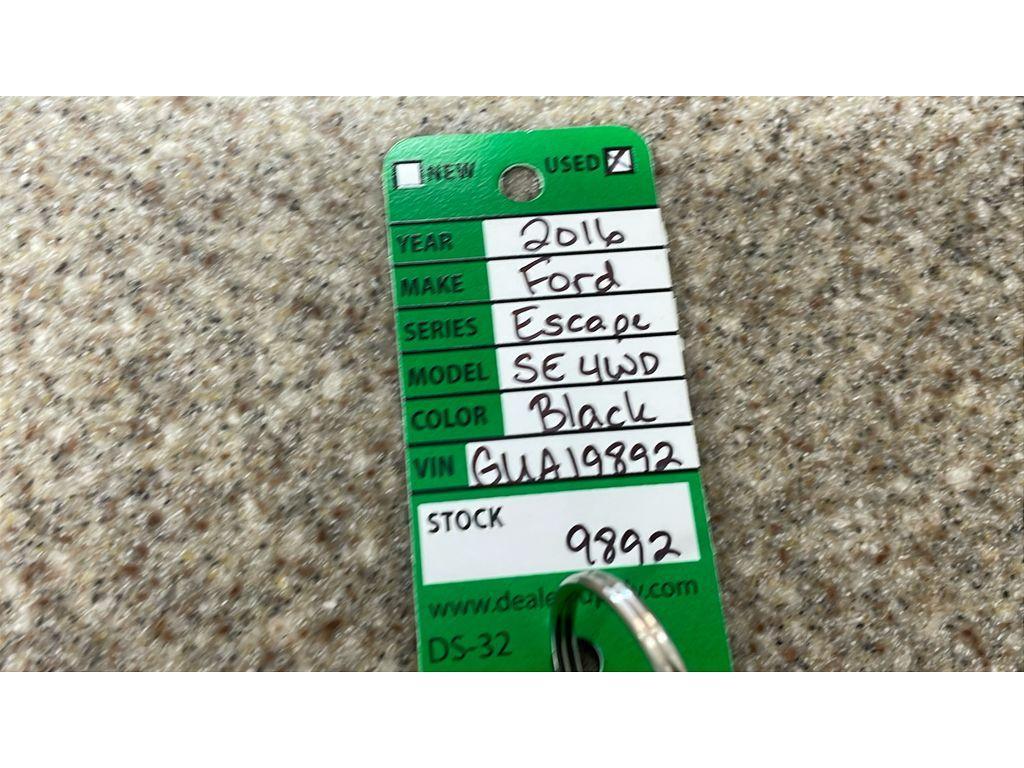 NEW USED
YEAR 2016
MAKE Ford
SERIES Escape
MODEL SE 4WD
COLOR Black
VIN GUA19892
STOCK
9892
DS-32